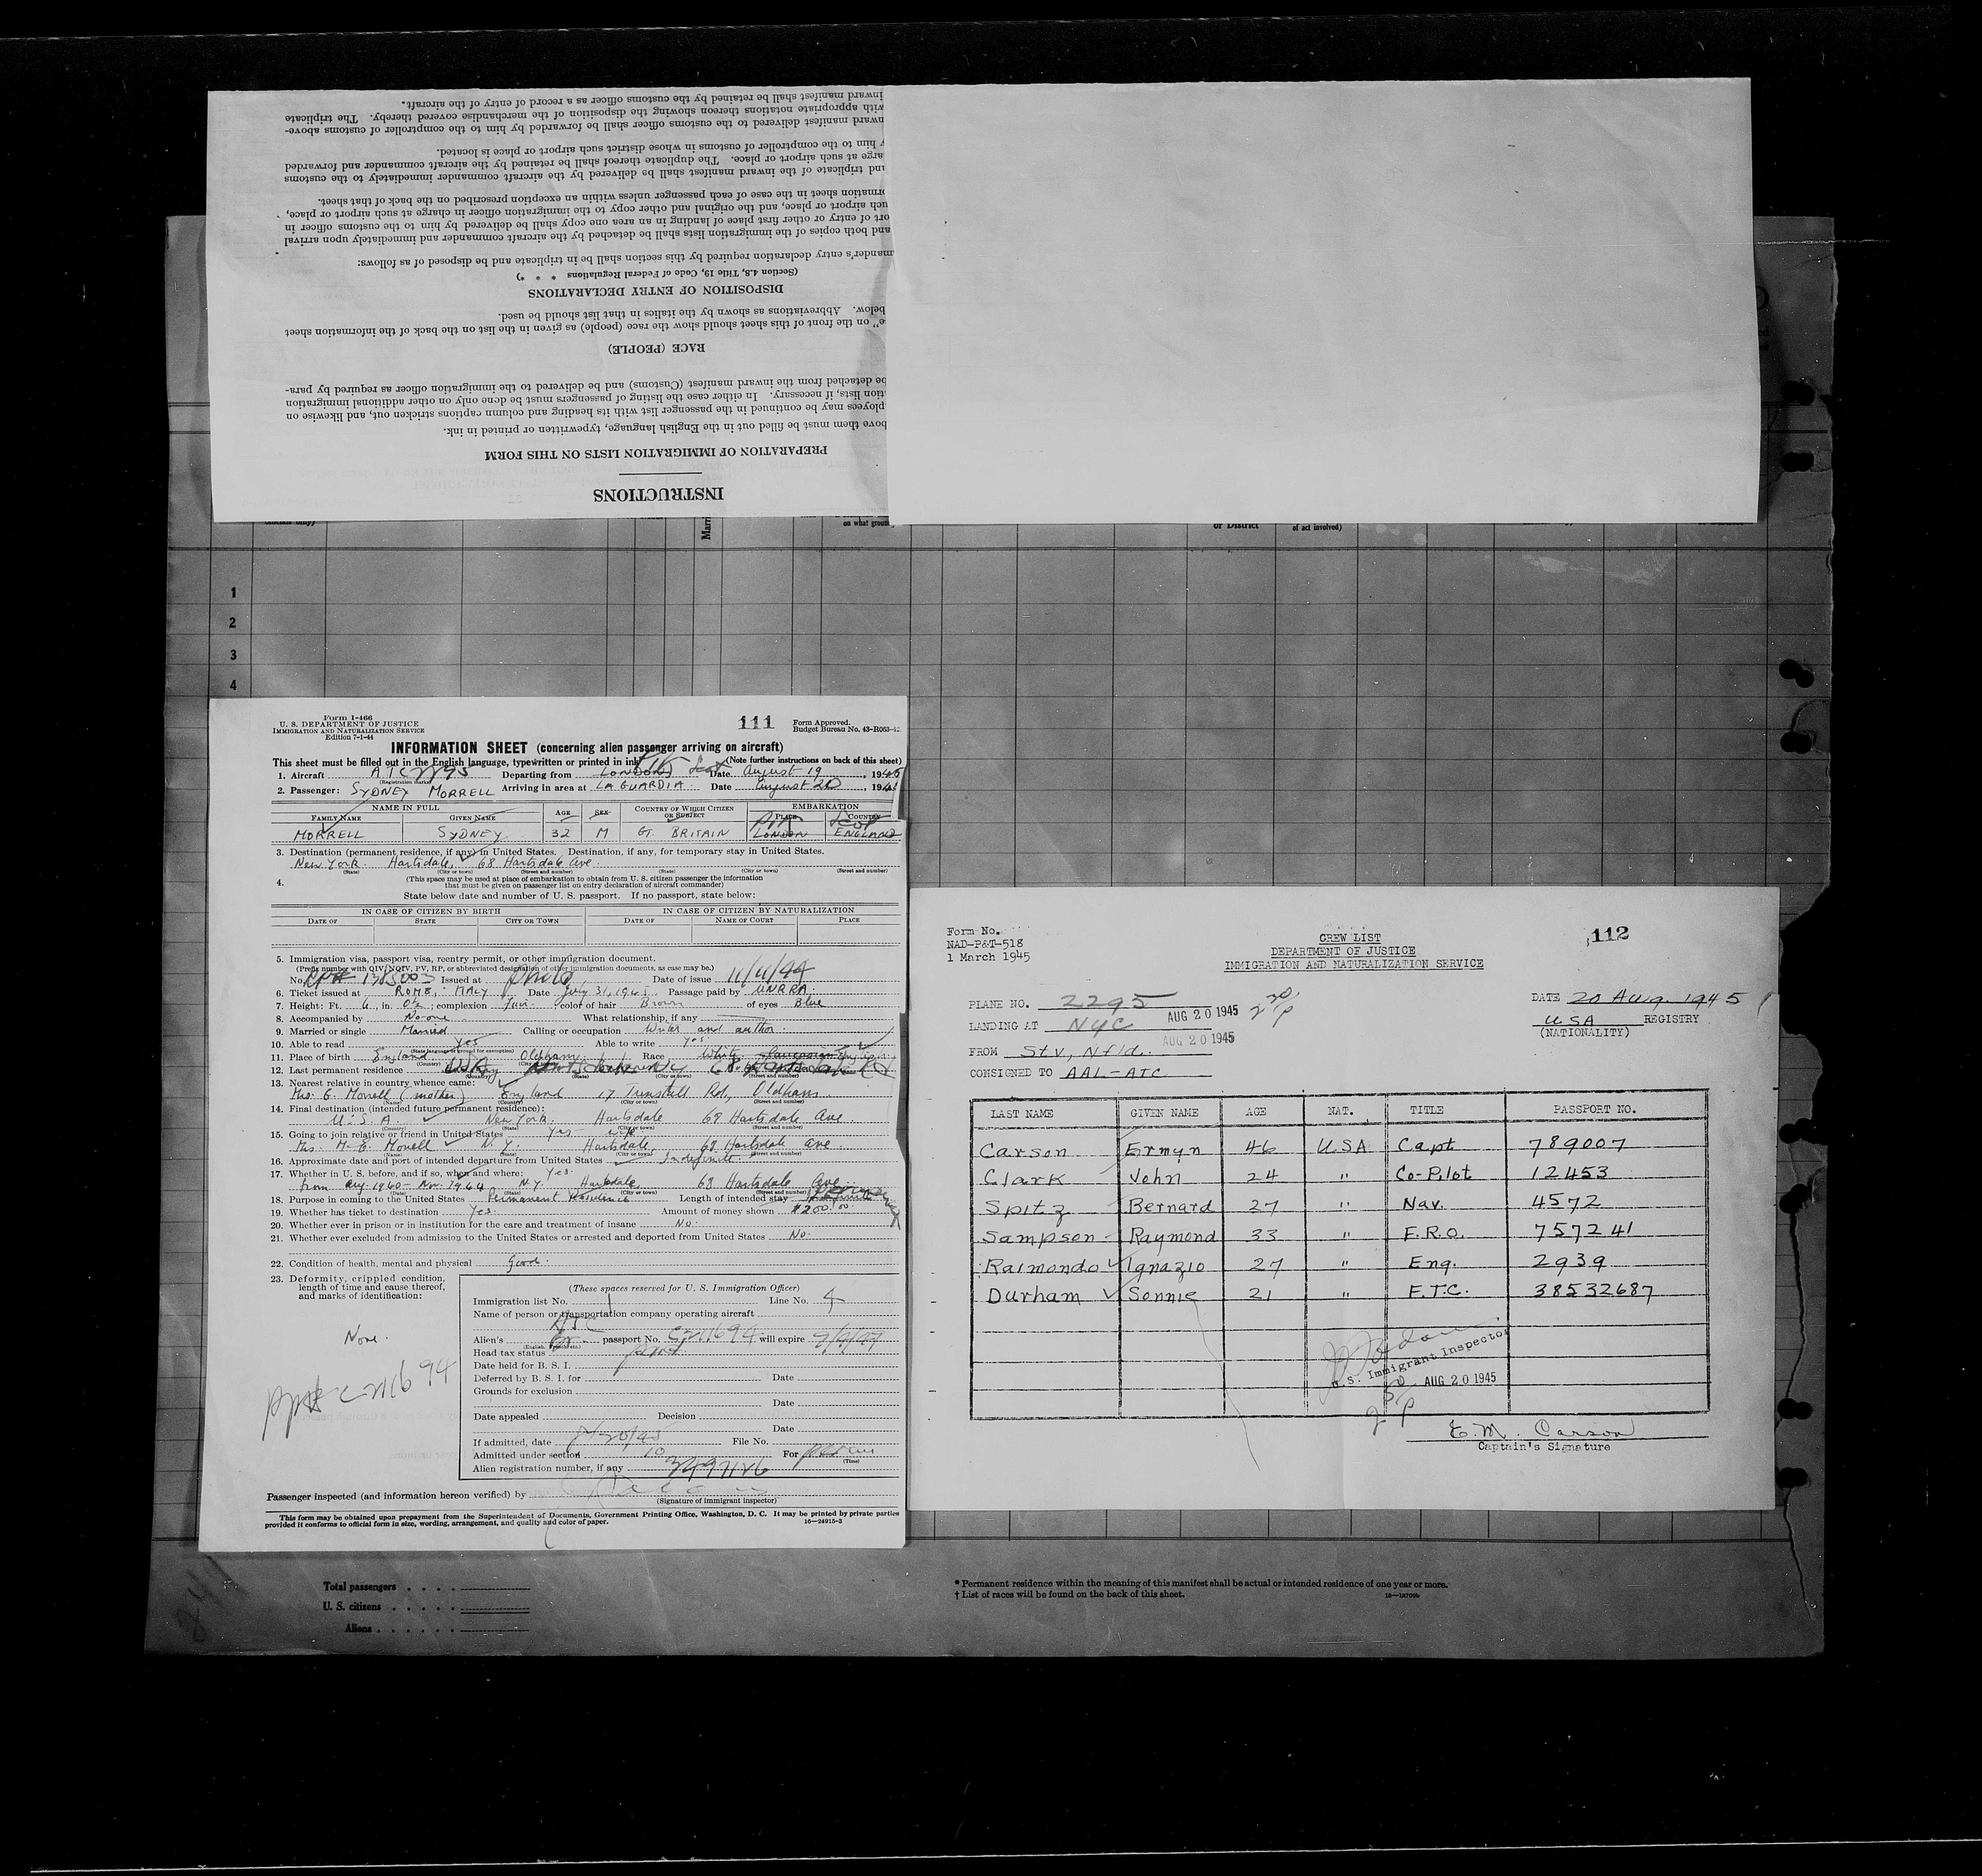 inward manifest shall be retained by the customs officer as a record of entry of the aircraft.
with appropriate notations thereon showing the disposition of the merchandise covered thereby. The triplicate
nward manifest delivered to the customs officer shall be forwarded by him to the comptroller of customs above-
y him to the comptroller of customs in whose district such airport or place is located.
arge at such airport or place. The duplicate thereof shall be retained by the aircraft commander and forwarded
and triplicate of the inward manifest shall be delivered by the aircraft commander immediately to the customs
ormation sheet in the case of each passenger unless within an exception prescribed on the back of that sheet.
uch airport or place, and the original and other copy to the immigration officer in charge at such airport or place,
ort of entry or other first place of landing in an area one copy shall be delivered by him to the customs officer in
and both copies of the immigration lists shall be detached by the aircraft commander and immediately upon arrival
mander's entry declaration required by this section shall be in triplicate and be disposed of as follows:
(Section 4.8, Title 19, Code of Federal Regulations * * *)
DISPOSITION OF ENTRY DECLARATIONS
below. Abbreviations as shown by the italics in that list should be used.
e" on the front of this sheet should show the race (people) as given in the list on the back of the information sheet
RACE (PEOPLE)
be detached from the inward manifest (Customs) and be delivered to the immigration officer as required by para-
tion lists, if necessary. In either case the listing of passengers must be done only on other additional immigration
ployees may be continued in the passenger list with its heading and column captions stricken out, and likewise on
bove them must be filled out in the English language, typewritten or printed in ink.
PREPARATION OF IMMIGRATION LISTS ON THIS FORM
INSTRUCTIONS
on what groun
or District
of act involved)
1
2
3
4
Form I-466
U. S. DEPARTMENT OF JUSTICE
IMMIGRATION AND NATURALIZATION SERVICE
Edition 7-1-44
111
Form Approved.
Budget Bureau No. 43-R063-42
INFORMATION SHEET (concerning alien passenger arriving on aircraft)
This sheet must be filled out in the English language, typewritten or printed in ink (Note further instructions on back of this sheet)
1. Aircraft ATC 2295 Departing from LONDON Date August 19, 1945
(Registration marks)
2. Passenger: SYDNEY MORRELL Arriving in area at LA GUARDIA Date August 20, 194
NAME IN FULL AGE SEX COUNTRY OF WHICH CITIZEN OR SUBJECT EMBARKATION
FAMILY NAME GIVEN NAME PLACE COUNTRY
MORRELL SYDNEY 32 M GT. BRITAIN LONDON ENGLAND
3. Destination (permanent residence, if any) in United States. Destination, if any, for temporary stay in United States.
New York. Hartsdale, 68 Hartsdale Ave.
(State) (City or town) (Street and number) (State) (City or town) (Street and number)
4. (This space may be used at place of embarkation to obtain from U. S. citizen passenger the information
that must be given on passenger list on entry declaration of aircraft commander)
State below date and number of U. S. passport. If no passport, state below:
IN CASE OF CITIZEN BY BIRTH IN CASE OF CITIZEN BY NATURALIZATION
DATE OF STATE CITY OR TOWN DATE OF NAME OF COURT PLACE
5. Immigration visa, passport visa, reentry permit, or other immigration document.
(Prefix number with QIV, NQIV, PV, RP, or abbreviated designation of other immigration documents, as case may be.)
No. 1385003 Issued at Phila Date of issue 11/11/44
6. Ticket issued at ROME, ITALY Date July 31, 1945 Passage paid by UNRRA.
7. Height: Ft. 6, in. 0½; complexion Fair; color of hair Brown of eyes Blue
8. Accompanied by No-one What relationship, if any
9. Married or single Married Calling or occupation Writer and author.
10. Able to read Yes Able to write Yes.
(State language or ground for exemption)
11. Place of birth England Oldham Race White
12. Last permanent residence
13. Nearest relative in country whence came:
Mrs. E. Morrell (mother) England 17 Tunstall Rd, Oldham.
(Name) (Country) (City or town) (Street and number)
14. Final destination (intended future permanent residence):
U.S.A. New York. Hartsdale 68 Hartsdale Ave.
(Country) (State) (City or town) (Street and number)
15. Going to join relative or friend in United States Yes wife
Mrs. M. E. Morrell N.Y. Hartsdale 68 Hartsdale ave.
(Name) (State) (City or town) (Street and number)
16. Approximate date and port of intended departure from United States Indefinite
17. Whether in U. S. before, and if so, when and where: Yes.
from Aug. 1940 - Nov. 1944 N.Y. Hartsdale 68 Hartsdale Ave.
(Date) (State) (City or town) (Street and number)
18. Purpose in coming to the United States Permanent Residence Length of intended stay
19. Whether has ticket to destination Yes. Amount of money shown $200.00.
20. Whether ever in prison or in institution for the care and treatment of insane No.
21. Whether ever excluded from admission to the United States or arrested and deported from United States No.
22. Condition of health, mental and physical Good.
23. Deformity, crippled condition,
length of time and cause thereof,
and marks of identification:
None.
(These spaces reserved for U. S. Immigration Officer)
Immigration list No. 1 Line No. 4
Name of person or transportation company operating aircraft
ATC
Alien's Br. passport No. C211694 will expire
Head tax status
Date held for B. S. I.
Deferred by B. S. I. for Date
Grounds for exclusion
Date
Date appealed Decision
Date
If admitted, date 8/20/45 File No.
Admitted under section 10 For
(Time)
Alien registration number, if any
ppt C 211694
Passenger inspected (and information hereon verified) by
(Signature of immigrant inspector)
This form may be obtained upon prepayment from the Superintendent of Documents, Government Printing Office, Washington, D. C. It may be printed by private parties
provided it conforms to official form in size, wording, arrangement, and quality and color of paper. 16—24915-3
Form No.
NAD-P&T-518
1 March 1945
CREW LIST
DEPARTMENT OF JUSTICE
IMMIGRATION AND NATURALIZATION SERVICE
112
PLANE NO. 2295
DATE 20 Aug. 1945
LANDING AT NYC AUG 20 1945
USA REGISTRY
(NATIONALITY)
FROM Stv, Nfld. AUG 20 1945
CONSIGNED TO AAL-ATC
LAST NAME GIVEN NAME AGE NAT. TITLE PASSPORT NO.
Carson Ermyn 46 USA Capt 789007
Clark John 24 " Co-Pilot 12453
Spitz Bernard 27 " Nav. 4572
Sampson Raymond 33 " F.R.O. 757241
Raimondo Ignazio 27 " Eng. 2939
Durham Sonnie 21 " F.T.C. 38532687
U.S. Immigrant Inspector
AUG 20 1945
E.M. Carson
Captain's Signature
Total passengers
U. S. citizens
Aliens
* Permanent residence within the meaning of this manifest shall be actual or intended residence of one year or more.
† List of races will be found on the back of this sheet.